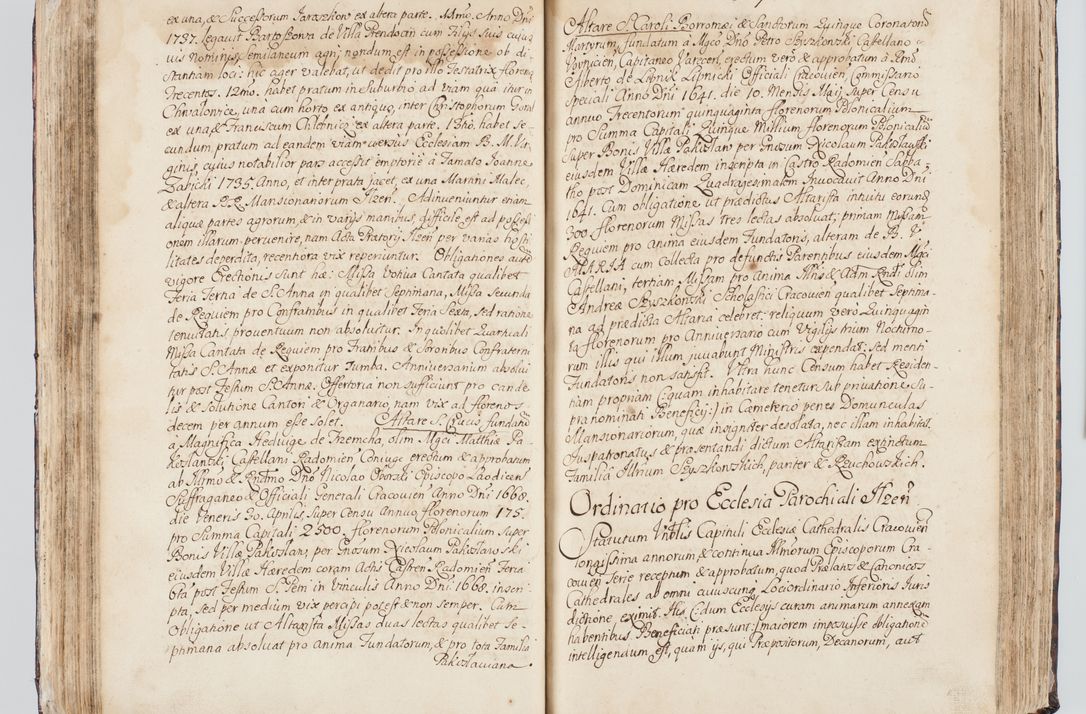 ex una, & Successorum Jaraszkow ex altera parte. 11mo. Anno Dni
1737. Legavit Bartossowa de Villa Prendocin cum Filijs Suis cujus
vis Nominis, semilaneum agri nondum est in possessione ob di-
stantiam loci: hic ager valebat, ut dedit pro illo Testatrix florenos
Trecentos. 12mo. habet pratum in Suburbio ad viam qua itur in
Chwałowice, una cum horto ex antiquo, inter Christophorum
ex una, & Franciscum Chlebnicz ex altera parte. 13tio. habet Se-
cundum pratum ad eandem viam versus Ecclesiam B. M. Vir-
ginis, cujus notabilior pars accessit emptorie à Famato Joanne
Zabicki 1735. Anno, et inter prata jacet, ex una Martini Malec,
& altera P.P. Mansionariorum Ilzen. Adinveniuntur etiam
aliquæ partes agrorum, & in varijs manibus, difficile est ad possessi-
onem illarum pervenire, nam Acta Prætorij Ilzen per varias hosti
litates deperdita, recentiora vix reperiuntur. Obligationes autem
vigore Erectionis Sunt hæ: Missa Votiva Cantata qualibet
Feria Tertia de S. Anna in qualibet Septimana, Missa Secunda
de Requiem pro Confratribus in qualibet Feria Sexta, sed ratione
tenuitatis proventuum non absolvitur. In quolibet Quartuali
Missa Cantata de Requiem pro Fratribus & Sororibus Confraterni
tatis S. Annæ et exponitur Tumba. Anniversarium absolvi
tur post Festum S. Annæ. Offertoria non sufficiunt pro cande
lis & Solutione Cantori & Organario, nam vix ad florenos
decem per annum esse solet. Altare S. Crucis fundatum
à Magnifica Hedvige de Trzemcha, olim Mgci Matthiæ Pa-
koslawski, Castellani Radomien Coniuge erectum & approbatum
ab Illmo & Rndmo Dno Nicolao Oborski Episcopo Laodicen
Suffraganeo & Officiali Generali Cracovien Anno Dni 1668.
die Veneris 30. Aprilis super Censu Annuo florenorum 175.
pro Summa Capitali 2500. florenorum Polonicalium Super
Bonis Villæ Pakoslaw, per Gnosum Nicolaum Pakoslawski
ejusdem Villæ Hæredem coram Actis Castren Radomien Feria
6ta post Festum S. Petri in Vinculis Anno Dni 1668. inscri-
pta, sed per medium vix percipi potest & non semper. Cum
Obligatione ut Altarista Missas duas lectas qualibet Se-
ptimana absolvat pro Anima Fundatorum, & pro tota Familia
Pakoslaviana.
Altare S. Caroli Borromæi & Sanctorum Quinque Coronatorum
Martyrum, fundatum à Mgco Dno Petro Szyszkowski Castellano
Woynicien, Capitaneo Varecen, erectum vero & approbatum à Rmd
Alberto de Lipnik Lipnicki Officiali Cracovien Commissario
Speciali Anno Dni 1641. die 10. Mensis Maij Super Censu
annuo Trecentorum quinquaginta florenorum Polonicalium
pro Summa Capitali Quinque Millium florenorum Polonicalium
Super Bonis Villa Pakoslaw per Gnosum Nicolaum Pakoslawski
ejusdem Villæ Hæredem inscripta in Castro Radomien Sabba-
tho post Dominicam Quadragesimalem Invocavit Anno Dni
1641. Cum obligatione ut prædictus Altarista intuitu eorund
300 florenorum Missas tres lectas absolvat; primam Missam
Requiem pro anima ejusdem Fundatoris, alteram de B. V.
MARIA cum Collecta pro defunctis Parentibus ejusdem Mgci
Castellani, tertiam Missam pro anima Illris & Adm Rndi olim
Andreæ Szyszkowski Scholastici Cracovien qualibet Septima-
na ad prædicta Altaria celebret; reliquum vero Quinquagin
ta florenorum pro Anniversario cum Vigilijs trium Nocturno-
rum illis qui illum juvabunt Ministris expendat: sed menti
Fundatoris non satisfit. Ultra hunc Censum habet Residen-
tiam propriam (: quam inhabitare tenetur sub privatione Su-
pra nominati Beneficij :) in Cæmeterio penes Domunculas
Mansionariorum, quæ insigniter desolata, nec illam inhabitat.
Juspatronatus & præsentandi dictum Altaristam
Familia Illrium Szyszkowskich, pariter & Rzuchowskich.
Ordinatio pro Ecclesia Parochiali Ilzen
Statutum Vnblis Capituli Ecclesiæ Cathedralis Cracovien
longissima annorum, & continua Illmorum Episcoporum Cra-
covien Serie receptum & approbatum, quod Prælatos & Canonicos
Cathedrales ab omni cujuscunq Loci ordinario Inferioris Juris
dictione eximit. His (: dum Ecclesijs curam animarum annexam
habentibus, Beneficiati præsunt :) maiorem imposuisse obligationem
intelligendum est, quam ijs, qui Præpositorum, Decanorum, aut